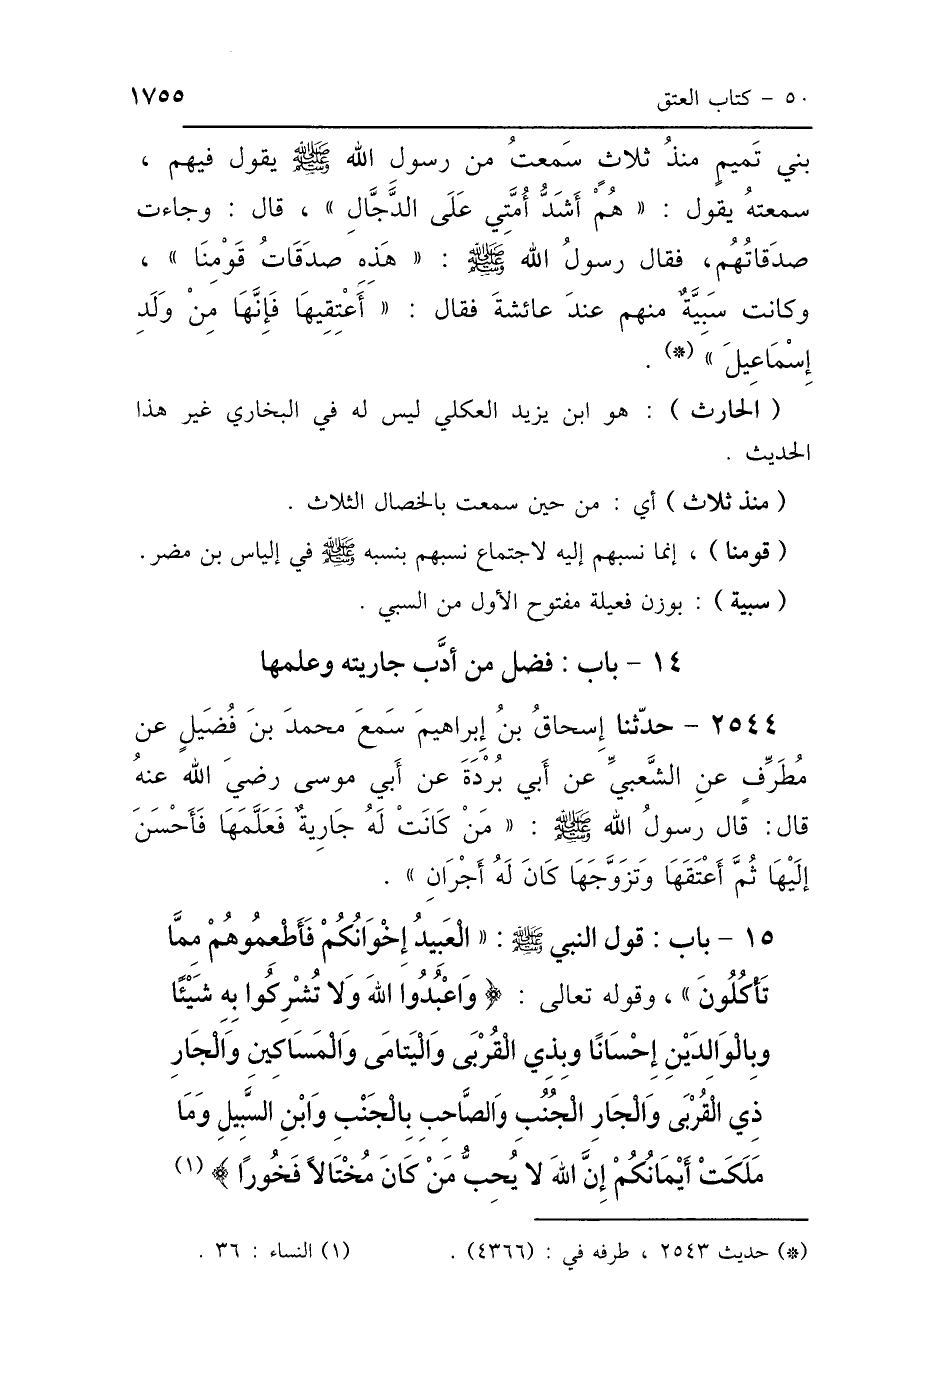 ٥٠ - كتاب العتق ١٧٥٥
بني تَميمٍ منذُ ثلاثٍ سَمعتُ من رسول الله ﷺ يقول فيهم ،
سمعتهُ يقول : « هُمْ أَشَدُّ أُمَّتِي عَلَى الدَّجَّالِ » ، قال : وجاءت
صدَقاتُهُم، فقال رسولُ الله ﷺ : « هَذِهِ صدَقَاتُ قَوْمِنَا » ،
وكانت سَبِيَّةٌ منهم عندَ عائشةَ فقال : « أَعْتِقِيهَا فَإِنَّهَا مِنْ وَلَدِ
إِسْمَاعِيلَ » (*) .
( الحارث ) : هو ابن يزيد العكلي ليس له في البخاري غير هذا
الحديث .
( منذ ثلاث ) أي : من حين سمعت بالخصال الثلاث .
( قومنا ) ، إنما نسبهم إليه لاجتماع نسبهم بنسبه ﷺ في إلياس بن مضر .
( سبية ) : بوزن فعيلة مفتوح الأول من السبي .
١٤ - باب : فضل من أدَّب جاريته وعلمها
٢٥٤٤ - حدّثنا إسحاقُ بنُ إبراهيمَ سَمعَ محمدَ بنَ فُضَيلٍ عن
مُطَرِّفٍ عنِ الشَّعبيِّ عن أبي بُرْدَةَ عن أبي موسى رضيَ الله عنهُ
قال: قال رسولُ الله ﷺ : « مَنْ كَانَتْ لَهُ جَارِيةٌ فَعَلَّمَهَا فَأَحْسَنَ
إِلَيْهَا ثُمَّ أَعْتَقَهَا وَتَزَوَّجَهَا كَانَ لَهُ أَجْرَانِ » .
١٥ - باب : قول النبي ﷺ : « الْعَبِيدُ إِخْوَانُكُمْ فَأَطْعِمُوهُمْ مِمَّا
تَأْكُلُونَ » ، وقوله تعالى : ﴿ وَاعْبُدُوا اللهَ وَلا تُشْرِكُوا بِهِ شَيْئًا
وبِالْوَالِدَيْنِ إِحْسَانًا وبِذِي الْقُرْبَى وَالْيَتَامَى وَالْمَسَاكِينِ وَالْجَارِ
ذِي الْقُرْبَى وَالْجَارِ الْجُنُبِ وَالصَّاحِبِ بِالْجَنْبِ وَابْنِ السَّبِيلِ وَمَا
مَلَكَتْ أَيْمَانُكُمْ إِنَّ اللهَ لا يُحِبُّ مَنْ كَانَ مُخْتَالاً فَخُورًا ﴾ (١)
(*) حديث ٢٥٤٣ ، طرفه في : (٤٣٦٦) . (١) النساء : ٣٦ .